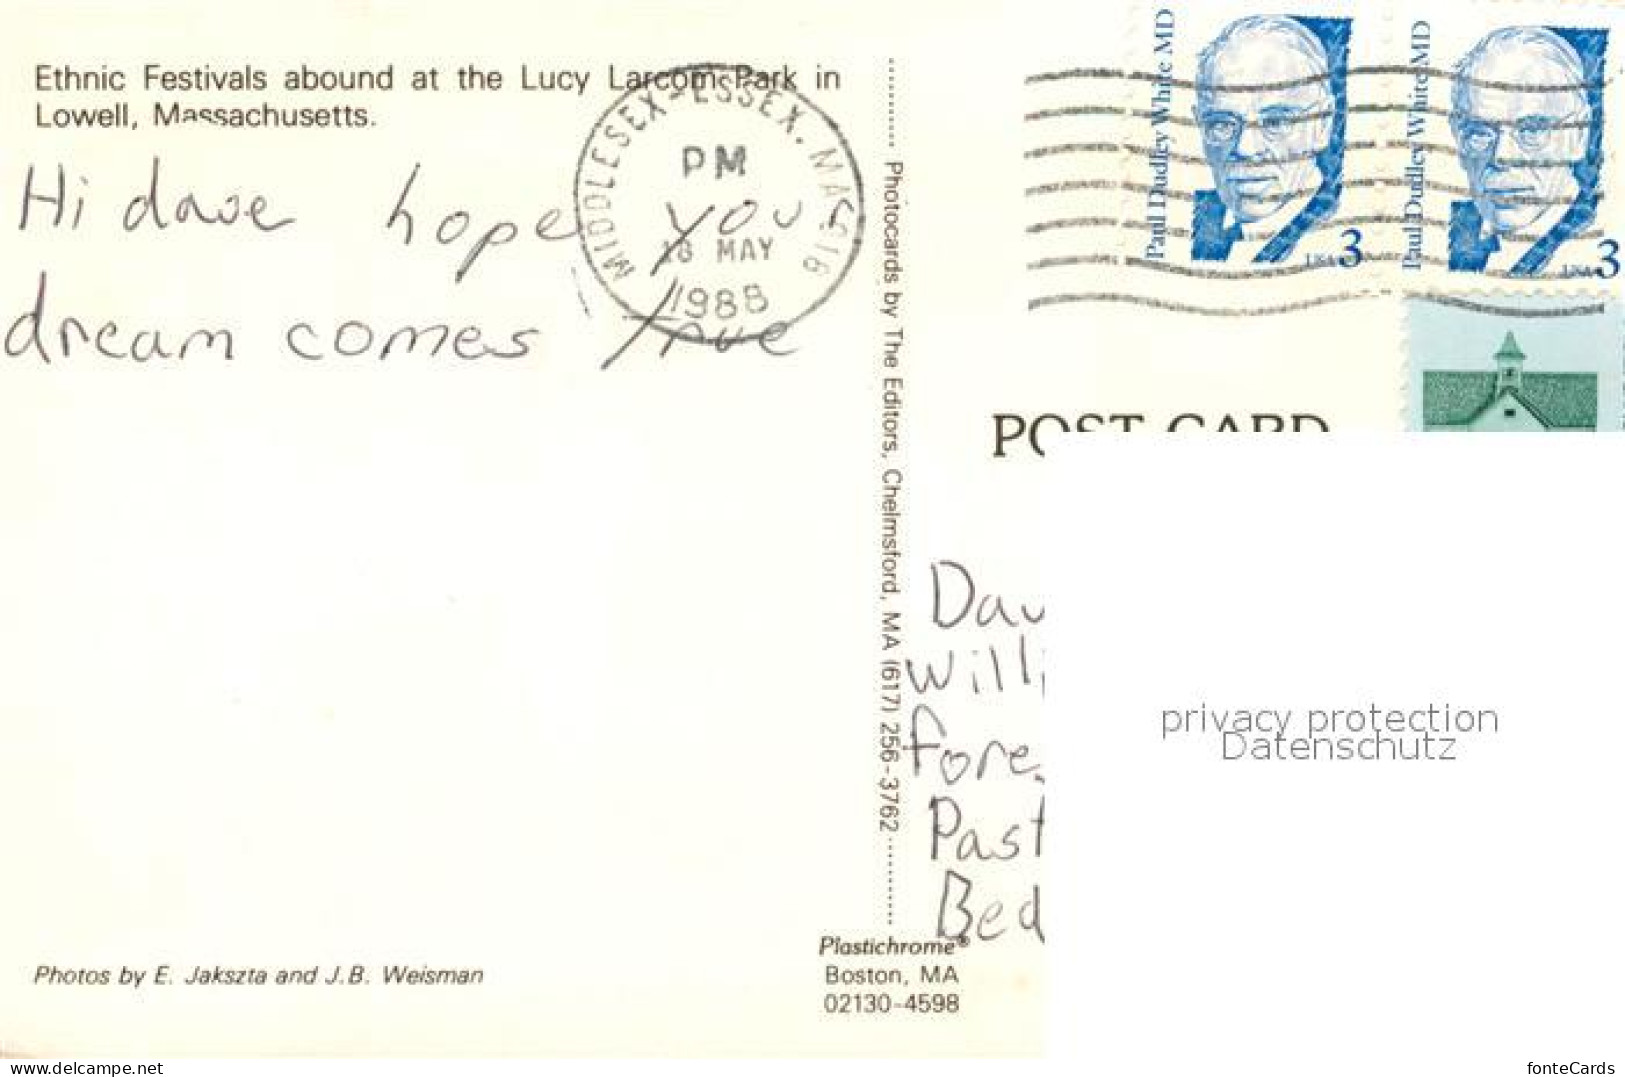 Ethnic Festivals abound at the Lucy Larcom Park in
Lowell, Massachusetts.
Hi dave hope you
dream comes true
MIDDLESEX-ESSEX, MA 018
PM
18 MAY
1988
Photocards by The Editors, Chelmsford, MA (617) 256-3762
Paul Dudley White MD
USA 3
Paul Dudley White MD
USA 3
POST CARD
Dav
Willi
fore
Past
Bed
privacy protection
Datenschutz
Plastichrome®
Boston, MA
02130-4598
Photos by E. Jakszta and J.B. Weisman
www.delcampe.net
fonteCards